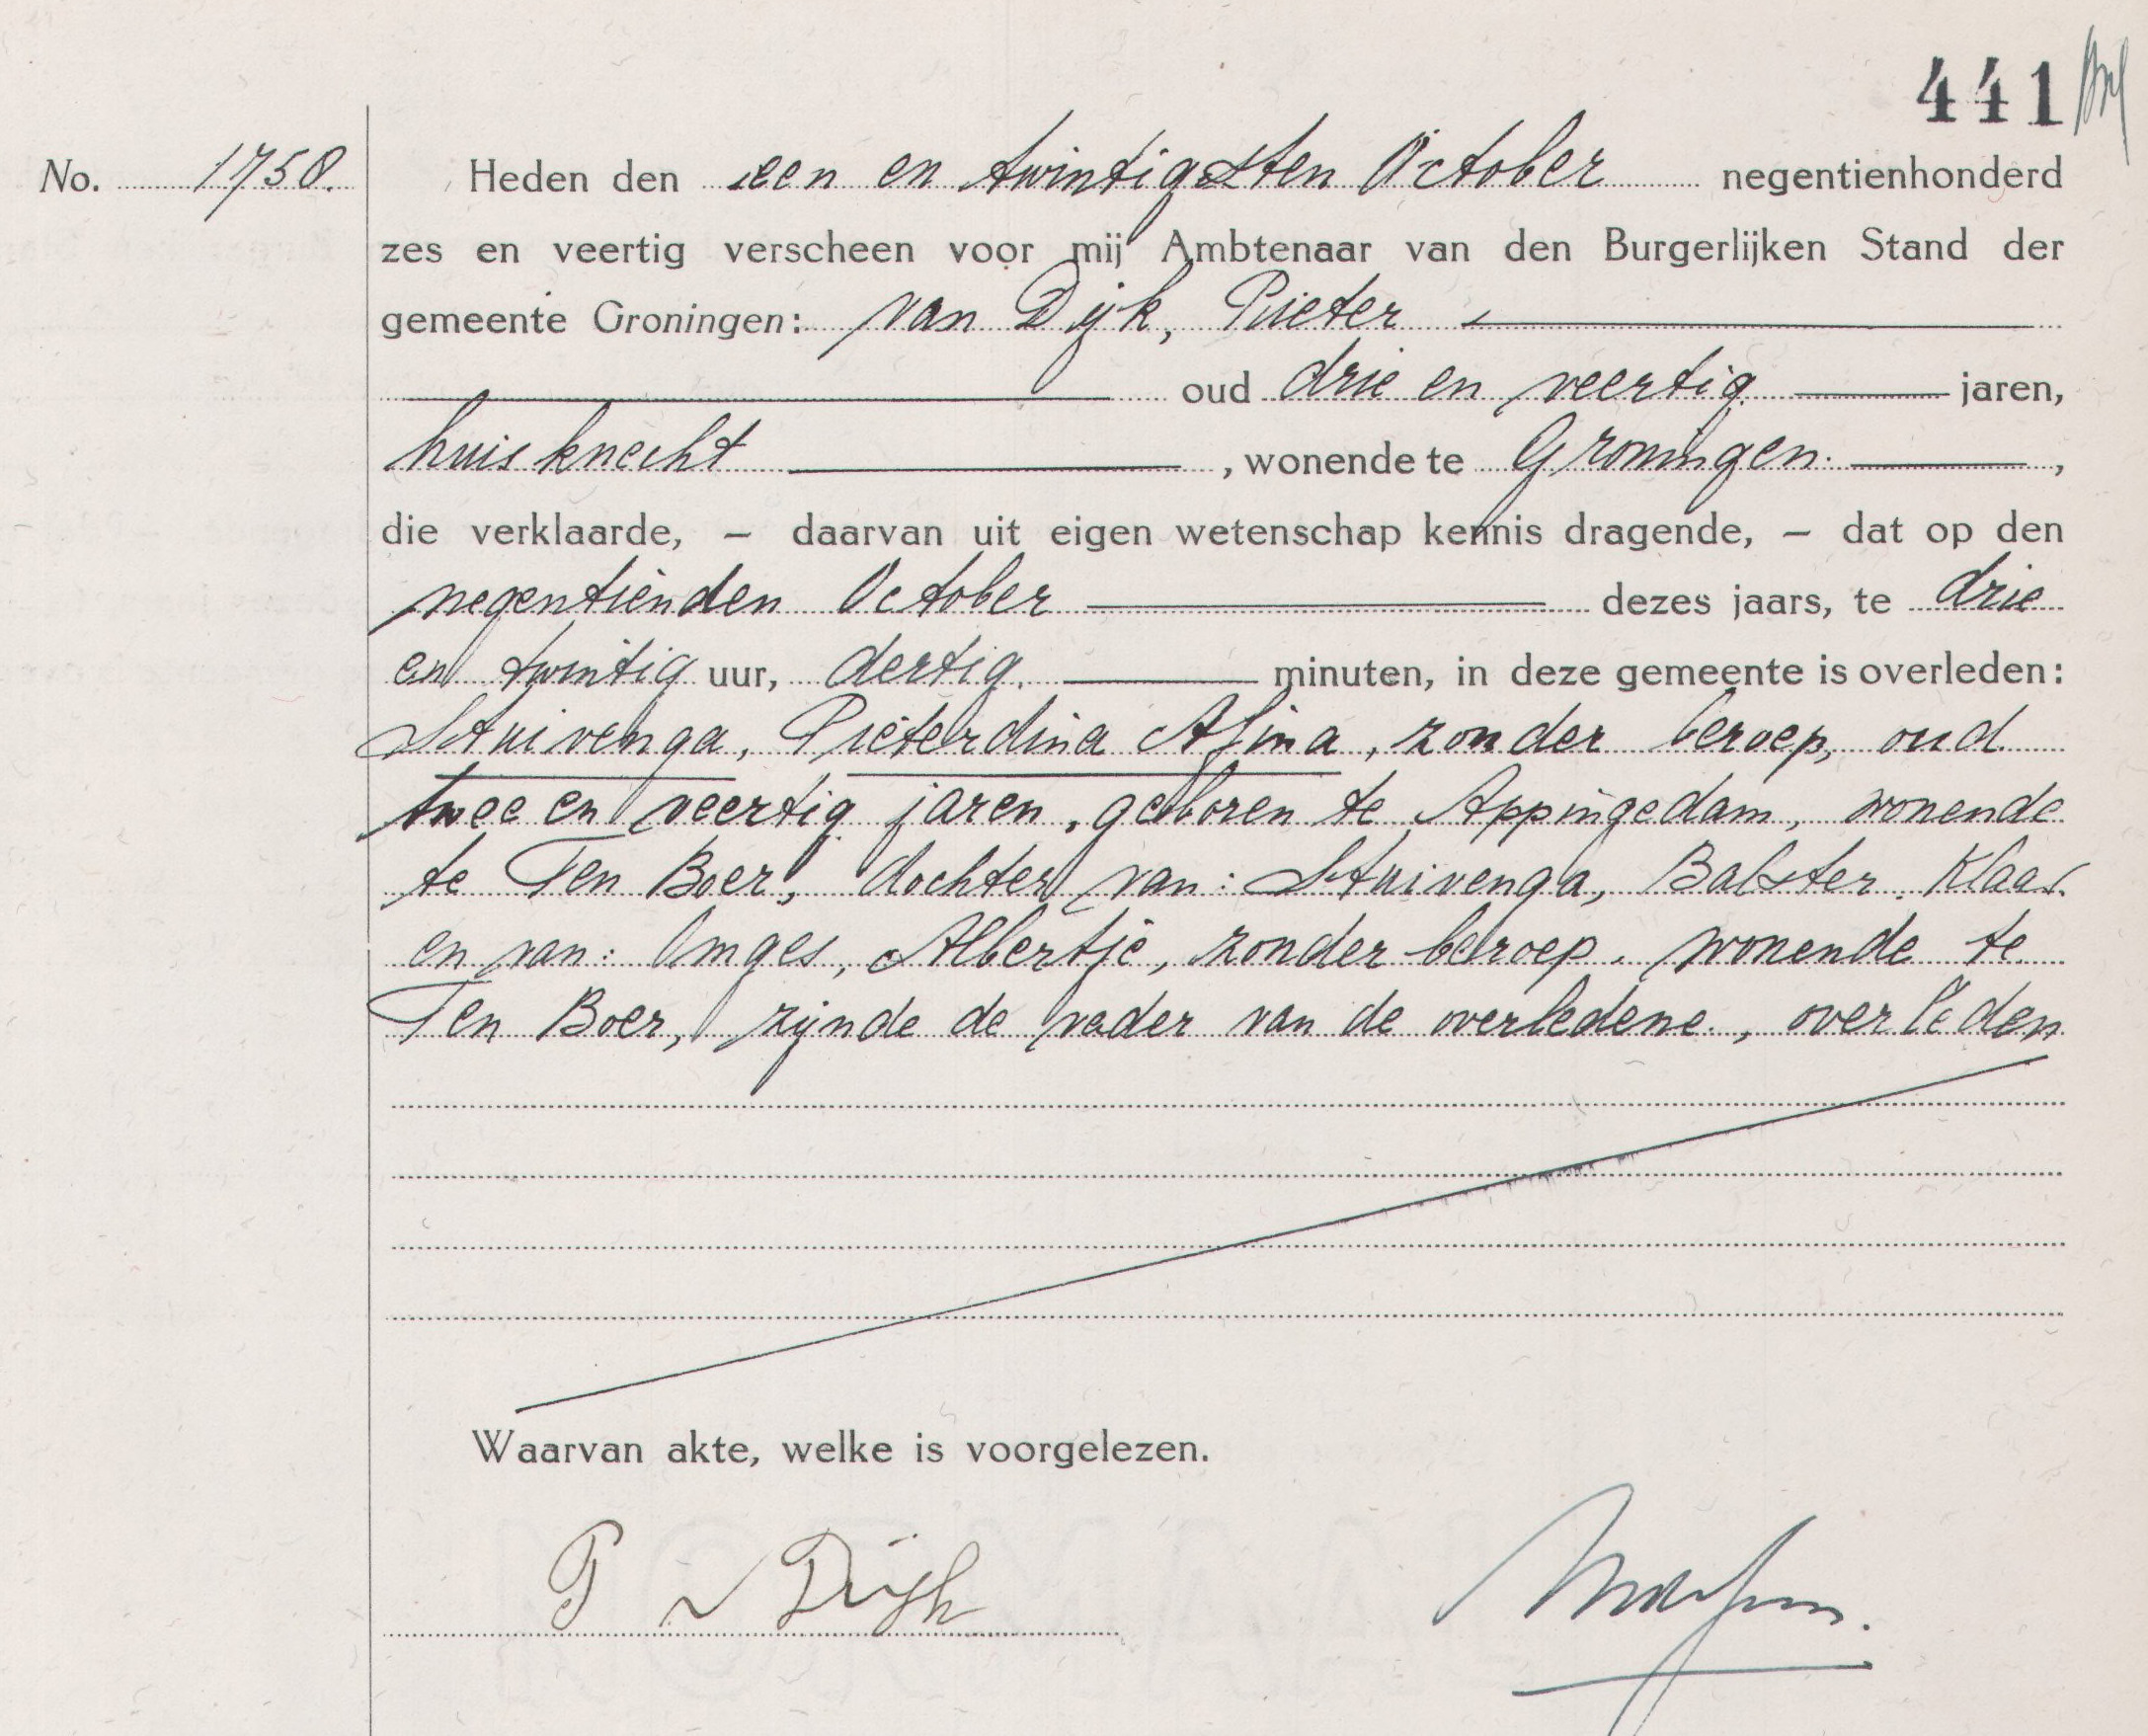 441
No. 1758. Heden den een en twintigsten October negentienhonderd
zes en veertig verscheen voor mij Ambtenaar van den Burgerlijken Stand der
gemeente Groningen: van Dijk, Pieter
oud drie en veertig jaren,
huisknecht , wonende te Groningen. ,
die verklaarde, – daarvan uit eigen wetenschap kennis dragende, – dat op den
negentienden October dezes jaars, te drie
en twintig uur, dertig. minuten, in deze gemeente is overleden:
Stuivenga, Pieterdina Afina, zonder beroep, oud
twee en veertig jaren, geboren te Appingedam, wonende
te Ten Boer, dochter van: Stuivenga, Balster Klaas.
en van: Omges, Albertje, zonder beroep, wonende te
Ten Boer, zijnde de vader van de overledene, overleden
Waarvan akte, welke is voorgelezen.
P v Dijk